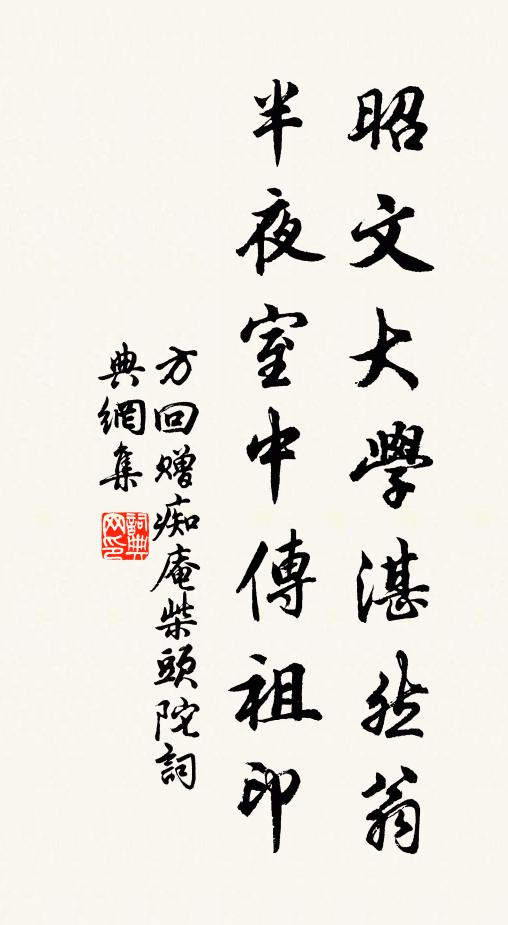 昭文大學湛然翁
半夜室中傳祖印
方回贈痴庵柴頭陀詞
典網集
詞典網印